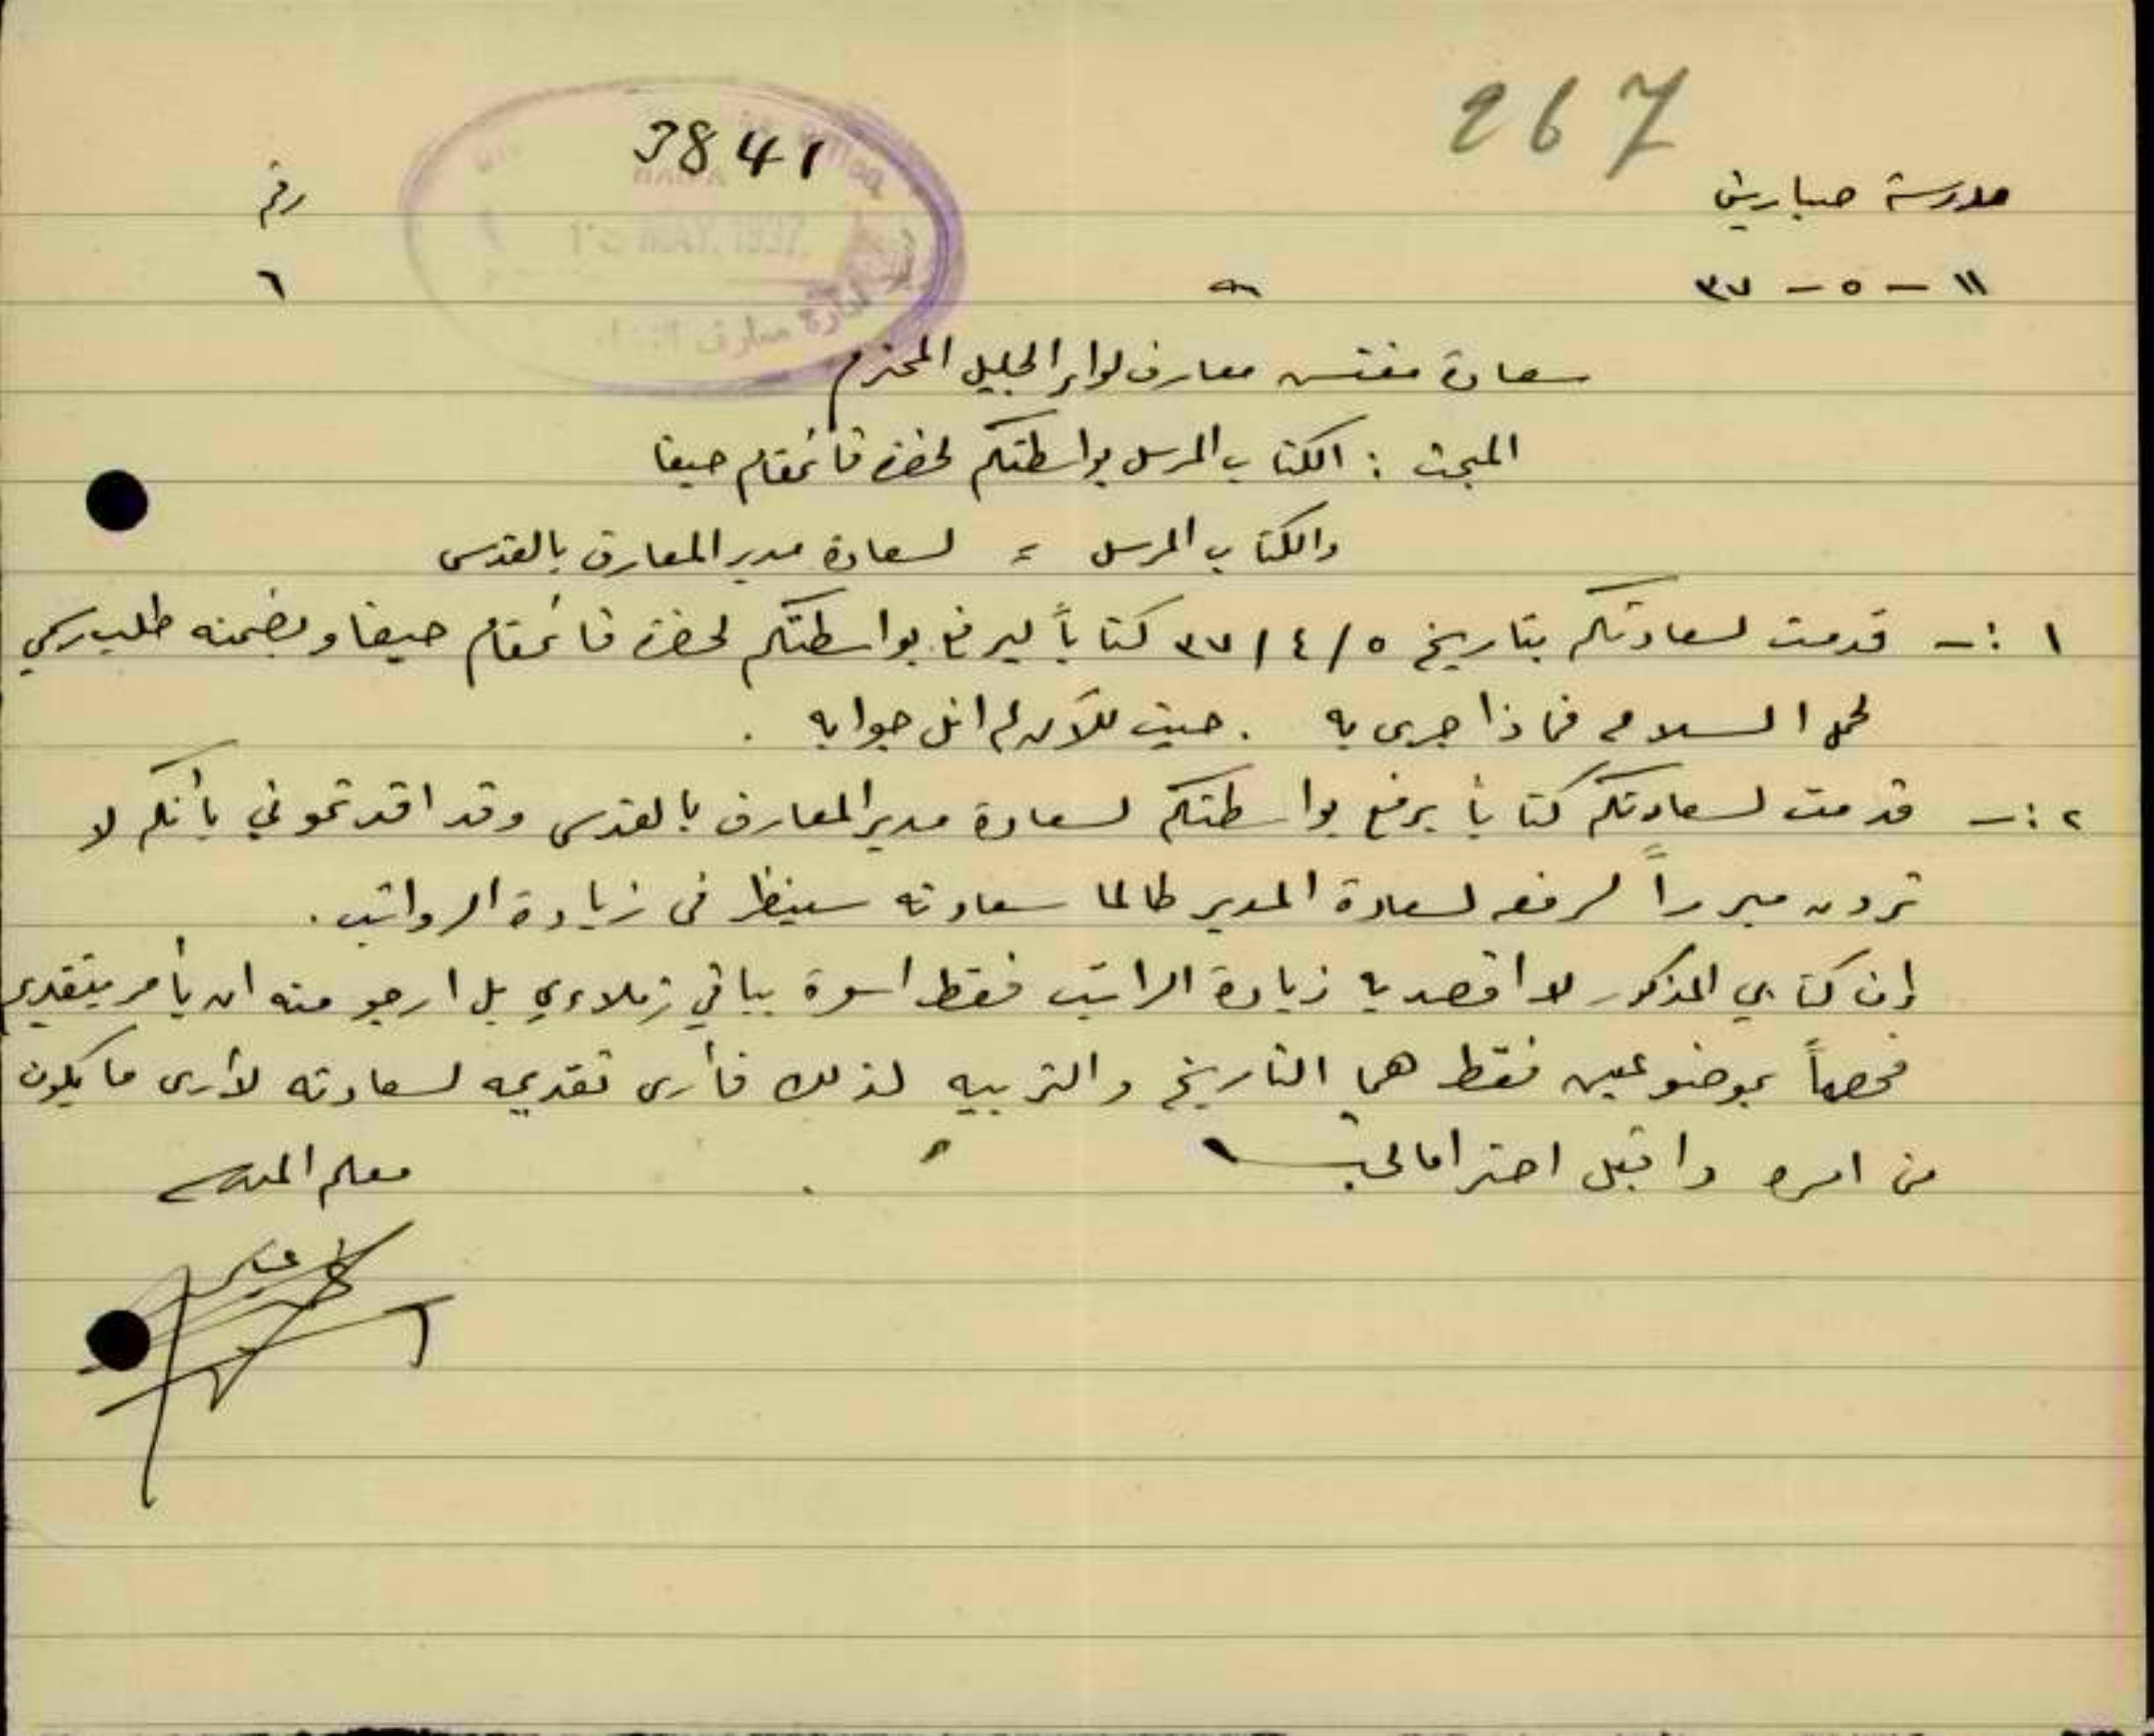 267
3841
مدرسة صبارين
رقم
١١ - ٥ - ٣٧
٦
سعادة مفتش معارف لواء الجليل المحترم
المبحث : الكتاب المرسل بواسطتكم لحضرة قائمقام حيفا
والكتاب المرسل = لسعادة مدير المعارف بالقدس
١ :- قدمت لسعادتكم بتاريخ ٥ / ٤ / ٣٧ كتاباً ليرفع بواسطتكم لحضرة قائمقام حيفا وبضمنه طلب رسمي
لحمل السلاح فماذا جرى به . حيث للآن لم انل جوابه .
٢ :- قدمت لسعادتكم كتاباً يرفع بواسطتكم لسعادة مدير المعارف بالقدس وقد افدتموني بأنكم لا
ترون مبرراً لرفعه لسعادة المدير طالما سعادته سينظر في زيادة الرواتب .
وان كتابي المذكور لا اقصد به زيادة الراتب فقط اسوة بباقي زملاءي بل ارجو منه ان يأمر بتقديمي
فحصاً بموضوعين فقط هما التاريخ والتربيه لذلك فأرى تقديمه لسعادته لأرى ما يكون
من امره واقبل احترامات
معلم المدرسة